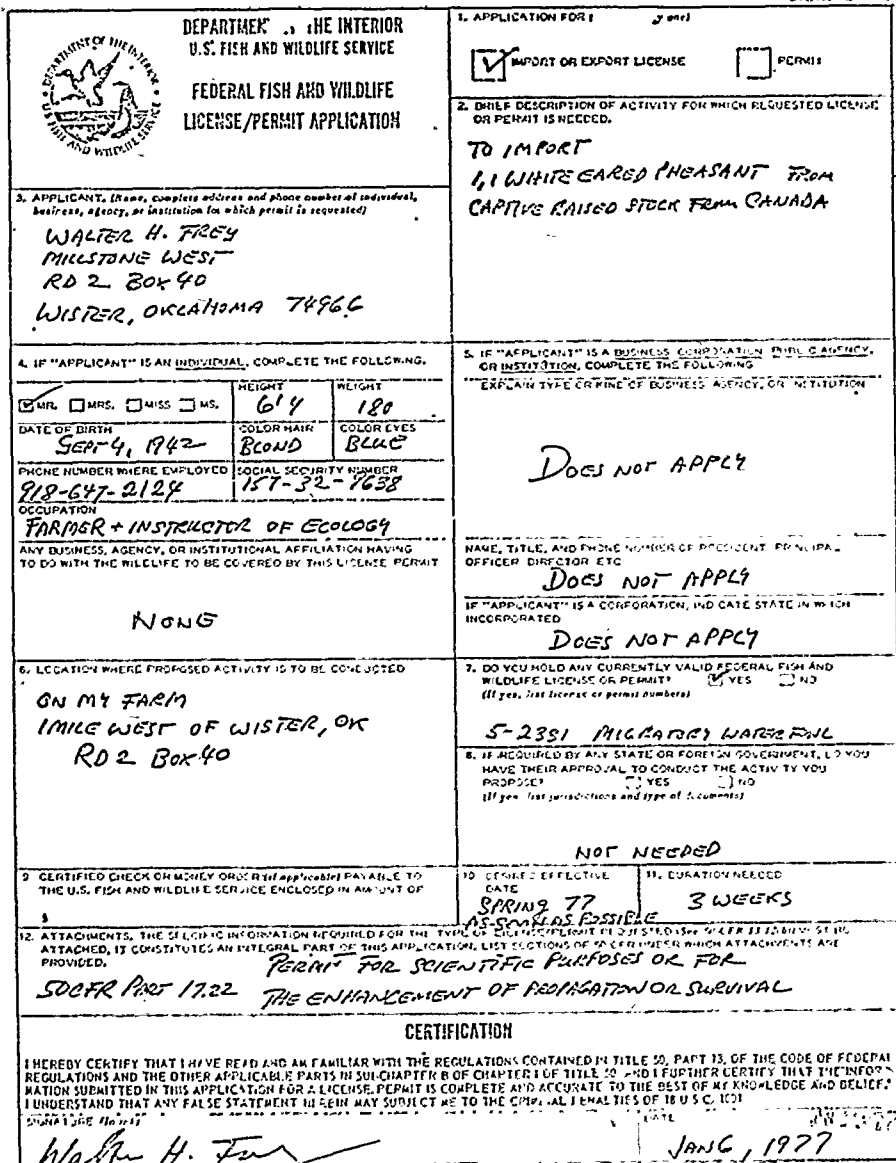 DEPARTMENT THE INTERIOR
U.S. FISH AND WILDLIFE SERVICE
FEDERAL FISH AND WILDLIFE
LICENSE/PERMIT APPLICATION
DEPARTMENT OF THE INTERIOR
U.S. FISH AND WILDLIFE SERVICE
1. APPLICATION FOR
IMPORT OR EXPORT LICENSE
PERMIT
2. BRIEF DESCRIPTION OF ACTIVITY FOR WHICH REQUESTED LICENSE
OR PERMIT IS NEEDED.
TO IMPORT
1,1 WHITE EARED PHEASANT FROM
CAPTIVE RAISED STOCK FROM CANADA
3. APPLICANT. (Name, complete address and phone number of individual,
business, agency, or institution for which permit is requested)
WALTER H. FREY
MILLSTONE WEST
RD 2 BOX 40
WISTER, OKLAHOMA 74966
4. IF "APPLICANT" IS AN INDIVIDUAL, COMPLETE THE FOLLOWING.
MR. MRS. MISS MS.
HEIGHT
6'4
WEIGHT
180
DATE OF BIRTH
SEPT 4, 1942
COLOR HAIR
BLOND
COLOR EYES
BLUE
PHONE NUMBER WHERE EMPLOYED
918-647-2124
SOCIAL SECURITY NUMBER
157-32-
OCCUPATION
FARMER + INSTRUCTOR OF ECOLOGY
ANY BUSINESS, AGENCY, OR INSTITUTIONAL AFFILIATION HAVING
TO DO WITH THE WILDLIFE TO BE COVERED BY THIS LICENSE PERMIT
NONE
5. IF "APPLICANT" IS A BUSINESS CORPORATION PUBLIC AGENCY,
OR INSTITUTION, COMPLETE THE FOLLOWING
EXPLAIN TYPE OR KIND OF BUSINESS AGENCY, OR INSTITUTION
DOES NOT APPLY
NAME, TITLE, AND PHONE NUMBER OF PRESIDENT PRINCIPAL
OFFICER DIRECTOR ETC
DOES NOT APPLY
IF "APPLICANT" IS A CORPORATION, INDICATE STATE IN WHICH
INCORPORATED
DOES NOT APPLY
6. LOCATION WHERE PROPOSED ACTIVITY IS TO BE CONDUCTED
ON MY FARM
1 MILE WEST OF WISTER, OK
RD 2 BOX 40
7. DO YOU HOLD ANY CURRENTLY VALID FEDERAL FISH AND
WILDLIFE LICENSE OR PERMIT? YES NO
(If yes, list license or permit numbers)
5-2381 MIGRATORY WATERFOWL
8. IF REQUIRED BY ANY STATE OR FOREIGN GOVERNMENT, DO YOU
HAVE THEIR APPROVAL TO CONDUCT THE ACTIVITY YOU
PROPOSE? YES NO
(If yes, list jurisdictions and type of documents)
NOT NEEDED
9 CERTIFIED CHECK OR MONEY ORDER (if applicable) PAYABLE TO
THE U.S. FISH AND WILDLIFE SERVICE ENCLOSED IN AMOUNT OF
$
10 DESIRED EFFECTIVE
DATE
SPRING 77
AS SOON AS POSSIBLE
11. DURATION NEEDED
3 WEEKS
12. ATTACHMENTS. THE SPECIFIC INFORMATION REQUIRED FOR THE TYPE OF LICENSE/PERMIT REQUESTED (See 50 CFR MUST BE
ATTACHED, IT CONSTITUTES AN INTEGRAL PART OF THIS APPLICATION, LIST SECTIONS OF 50 CFR UNDER WHICH ATTACHMENTS ARE
PROVIDED.
PERMIT FOR SCIENTIFIC PURPOSES OR FOR
50CFR PART 17.22 THE ENHANCEMENT OF PROPAGATION OR SURVIVAL
CERTIFICATION
I HEREBY CERTIFY THAT I HAVE READ AND AM FAMILIAR WITH THE REGULATIONS CONTAINED IN TITLE 50, PART 13, OF THE CODE OF FEDERAL
REGULATIONS AND THE OTHER APPLICABLE PARTS IN SUBCHAPTER B OF CHAPTER I OF TITLE 50 AND I FURTHER CERTIFY THAT THE INFOR-
MATION SUBMITTED IN THIS APPLICATION FOR A LICENSE/PERMIT IS COMPLETE AND ACCURATE TO THE BEST OF MY KNOWLEDGE AND BELIEF.
I UNDERSTAND THAT ANY FALSE STATEMENT HEREIN MAY SUBJECT ME TO THE CRIMINAL PENALTIES OF 18 U.S.C. 1001
SIGNATURE
Walter H. Frey
DATE
JAN 6, 1977